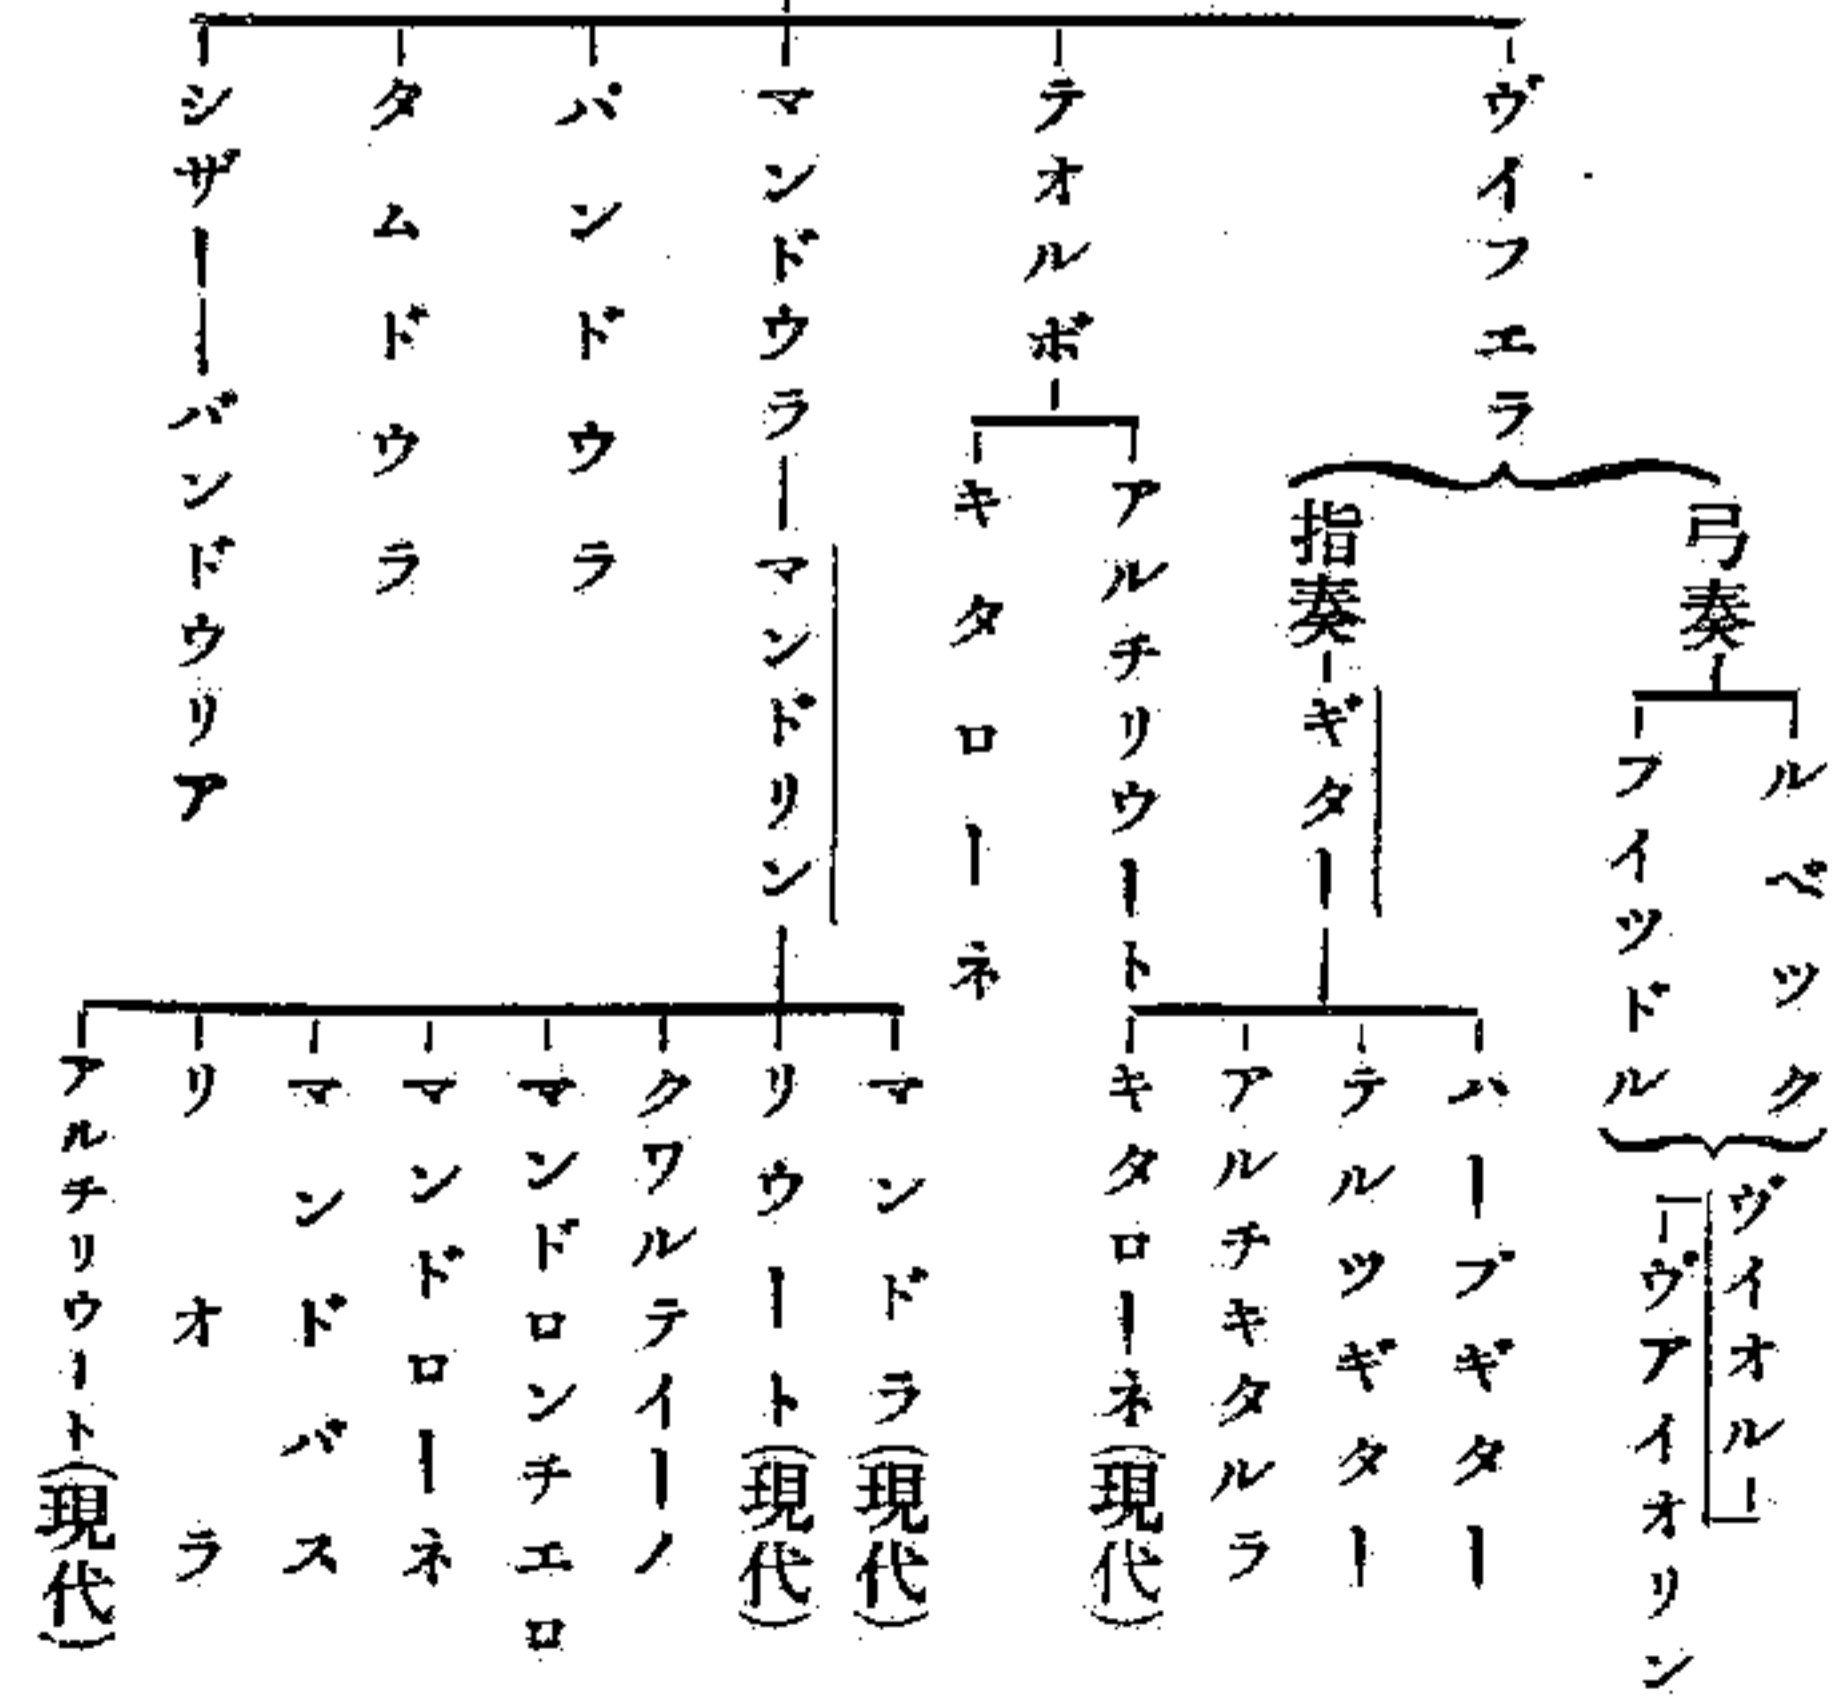 ヴイフエラ
弓奏
ルベツク
フイツドル
ヴイオル
ヴアイオリン
指奏
ギター
ハープギター
テルツギター
アルチキタルラ
キタローネ(現代)
テオルボ
アルチリウート
キタローネ
マンドウラ
マンドリン
マンドラ(現代)
リウート(現代)
クワルテイーノ
マンドロンチエロ
マンドローネ
マンドバス
リオラ
アルチリウート(現代)
パンドウラ
タムドウラ
シザー
バンドウリア